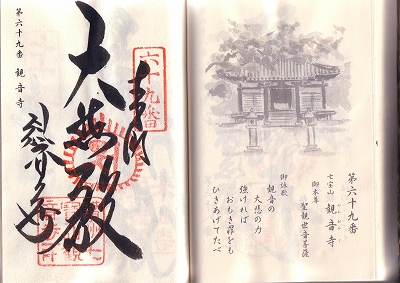 第六十九番
七宝山 観音寺
かんのんじ
御本尊
聖観世音菩薩
御詠歌
観音の
大悲の力
強ければ
おもき罪をも
ひきあげてたべ
第六十九番 観音寺
六十九番
奉納
大悲殿